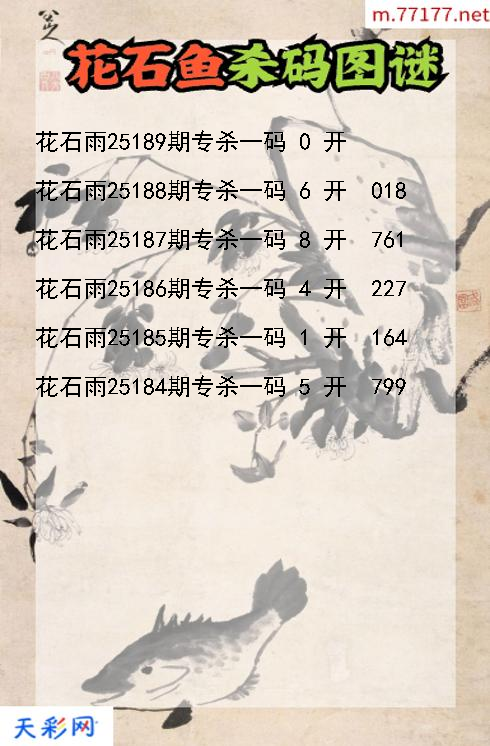 m.77177.net
花石鱼杀码图谜
花石雨25189期专杀一码 0 开
花石雨25188期专杀一码 6 开 018
花石雨25187期专杀一码 8 开 761
花石雨25186期专杀一码 4 开 227
花石雨25185期专杀一码 1 开 164
花石雨25184期专杀一码 5 开 799
天彩网